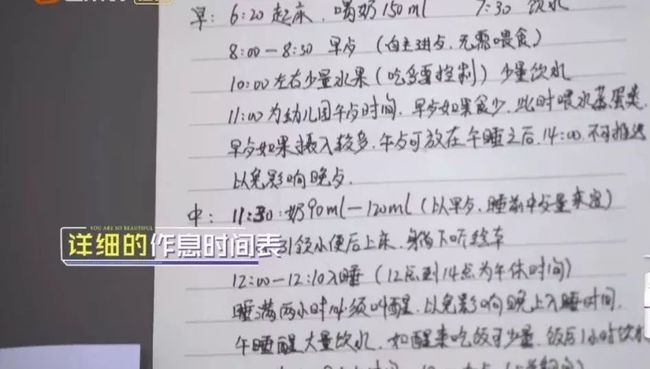 早：6:20起床，喝奶150ml 7:30饮水
8:00—8:30 早歺（自主进歺，无需喂食）
10:00左右少量水果（吃多要控制）少量饮水
11:00为幼儿园午歺时间，早歺如果食少，此时喂水蒸蛋类，
早歺如果摄入较多，午歺可放在午睡之后，14:00，不可推迟
以免影响晚歺。
中：11:30:奶90ml—120ml（以早歺、睡前
YOU ARE SO BEAUTIFUL
详细的作息时间表
小便后上床，
12:00—12:10入睡（12点到14点为午休时间）
睡满两小时必须叫醒，以免影响晚上入睡时间，
午睡醒大量饮水，如醒来吃饭可少量，饭后1小时饮水